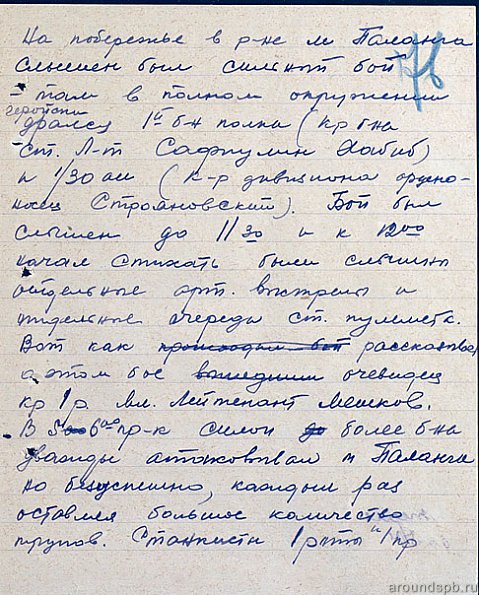 На побережье в р-не м Паланга
слышен был сильный бой
- там в полном окружении
геройски
дрался 1й б-н полка (к-р б-на
ст. Л-т Сафиулин Хабиб)
и 1/30 ап (к-р дивизиона ордено-
носец Строяновский). Бой был
слышен до 11 30 и к 12 00
начал стихать были слышны
отдельные арт. выстрелы и
отдельные очереди ст. пулемета.
Вот как происходил бой рассказывает
о этом бое очевидец
к-р 1 р. мл. лейтенант Мешков.
В 6 00 пр-к силой до более б-на
дважды атаковывал м Паланга
но безуспешно, каждый раз
оставляя большое количество
трупов. Станкисты 1 роты и 1 пр
76
aroundspb.ru